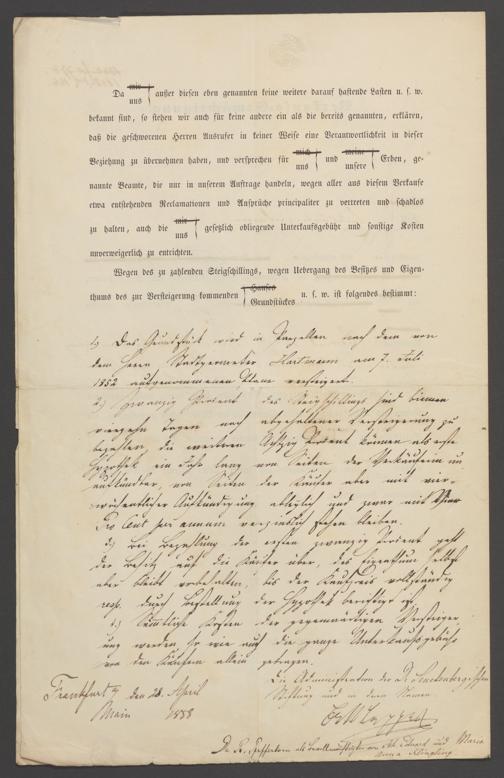 Da mir uns außer diesen eben genannten keine weitere darauf haftende Lasten u. s. w.
bekannt sind, so stehen wir auch für keine andere ein als die bereits genannten, erklären,
daß die geschworenen Herren Ausrufer in keiner Weise eine Verantwortlichkeit in dieser
Beziehung zu übernehmen haben, und versprechen für mich uns und meine unsere Erben, ge-
nannte Beamte, die nur in unserem Auftrage handeln, wegen aller aus diesem Verkaufe
etwa entstehenden Reclamationen und Ansprüche principaliter zu vertreten und schadlos
zu halten, auch die mir uns gesetzlich obliegende Unterkaufsgebühr und sonstige Kosten
unverweigerlich zu entrichten.
Wegen des zu zahlenden Steigschillings, wegen Uebergang des Besitzes und Eigen-
thums des zur Versteigerung kommenden Hauses Grundstückes u. s. w. ist folgendes bestimmt:
1.) Das Grundstück wird in Parzellen nach dem von
dem Herrn Stadtgeometer Hartmann am 7. Juli
1852 aufgenommenen Plane versteigert.
2.) Zwanzig Prozent des Steigschillings sind binnen
vierzehn Tagen nach abgehaltener Versteigerung zu
bezahlen, die weiteren Achtzig Prozent können als erste
Hypothek ein Jahr lang von Seiten der Verkäuferin un
aufkündbar, von Seiten der Käufer aber mit vier-
wöchentlicher Aufkündigung ablöslich und zwar mit Vier
Pro Cent per annum verzinslich stehen bleiben.
3.) Bei Bezahlung der ersten zwanzig Prozent geht
der Besitz auf die Käufer über, das Eigenthum selbst
aber bleibt vorbehalten, bis der Kaufpreis vollständig
resp. durch Bestellung der Hypothek berichtigt ist.
4.) Sämtliche Kosten der gegenwärtigen Versteiger
ung werden so wie auch die ganze Unterkaufsgebühr
von den Käufern allein getragen.
Die Administration der Dr. Senckenbergischen
Stiftung und in deren Namen
Frankfurt a/ den 28. April
Main 1858
Dr. als Bevollmächtigter von Eduard und Maria
Anna